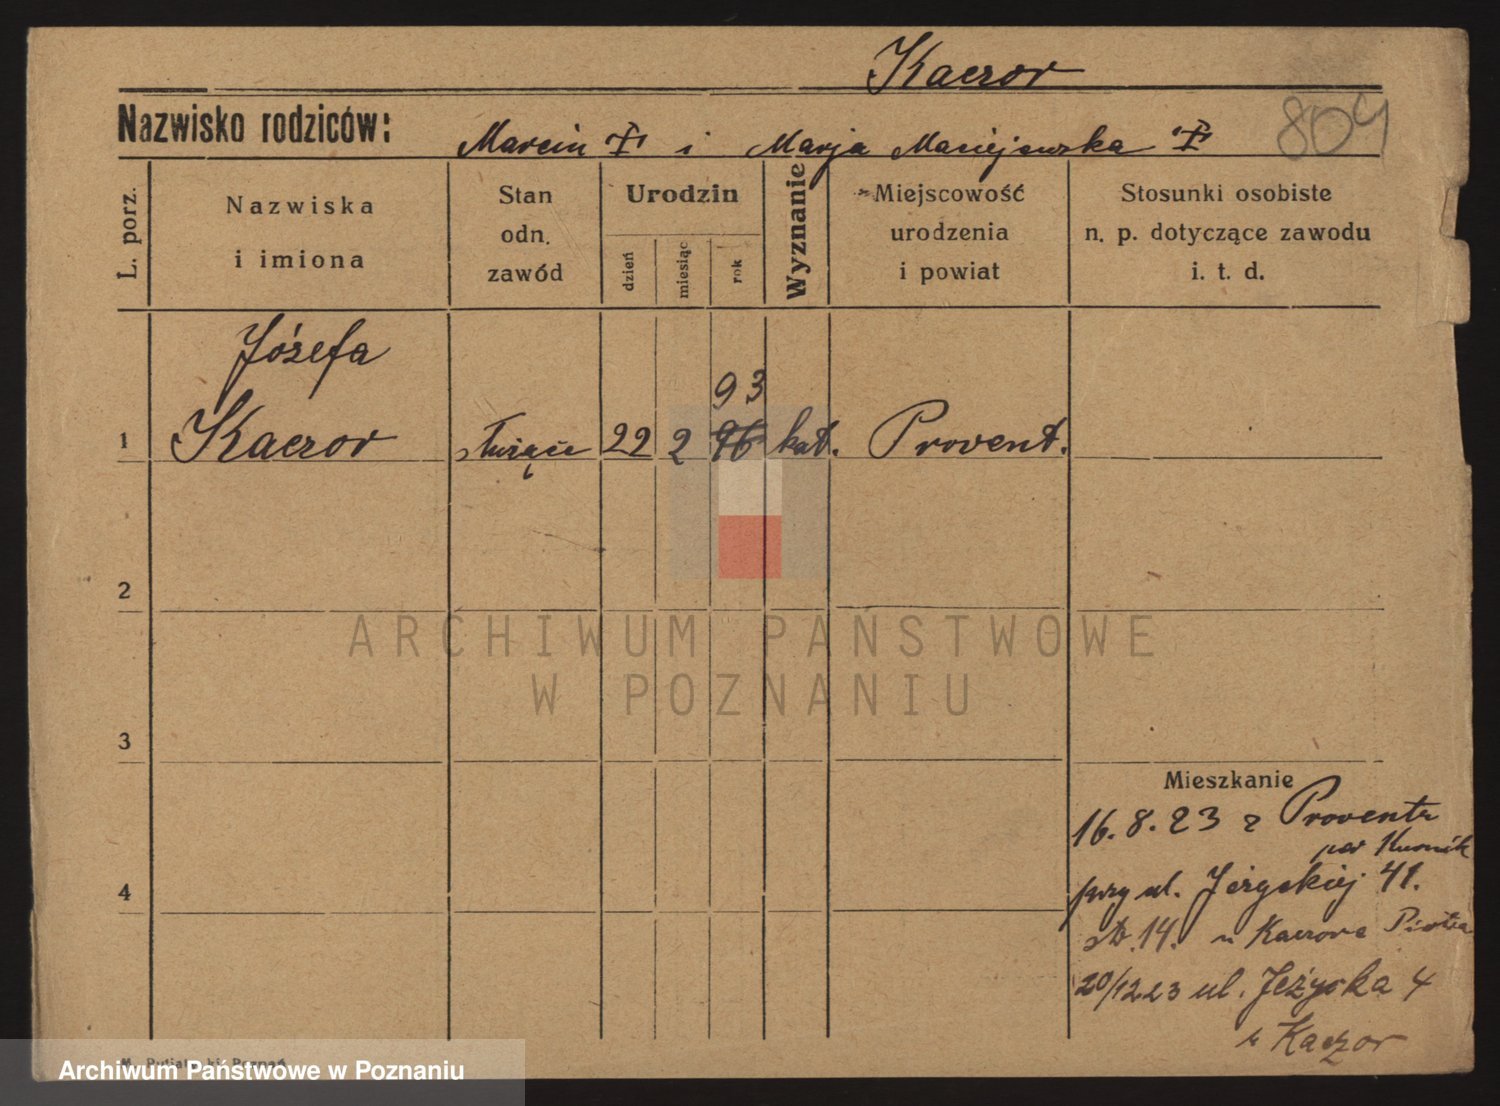 Kaczor
Nazwisko rodziców:
Marcin † i Marja Maciejewska †
809
L. porz.
Nazwiska
i imiona
Stan
odn.
zawód
Urodzin
dzień
miesiąc
rok
Wyznanie
Miejscowość
urodzenia
i powiat
Stosunki osobiste
n. p. dotyczące zawodu
i. t. d.
Józefa
93
1 Kaczor służące 22 2 96 kat. Provent.
2
ARCHIWUM PAŃSTWOWE
W POZNANIU
3
Mieszkanie
16. 8. 23 z Proventu
pow
4
przy ul. 41.
14. u Kaczora Piotra
20/12 23 ul. Jeżycka 4
u Kaczor
Poznań
Archiwum Państwowe w Poznaniu